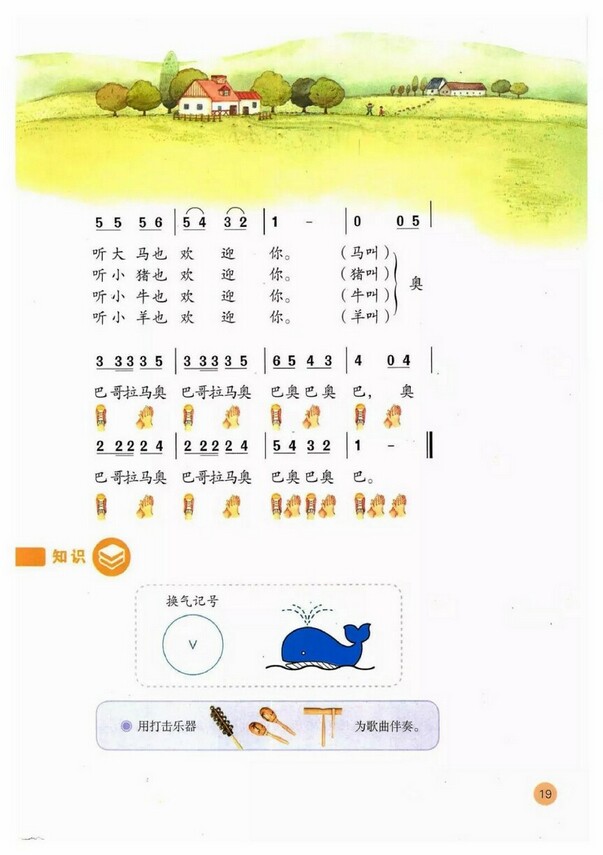 5 5 5 6 | 5 4 3 2 | 1 - | 0 0 5 |
听大 马也 欢 迎 你。 (马叫)
听小 猪也 欢 迎 你。 (猪叫)
听小 牛也 欢 迎 你。 (牛叫)
听小 羊也 欢 迎 你。 (羊叫)
奥
3 3 3 3 5 | 3 3 3 3 5 | 6 5 4 3 | 4 0 4 |
巴哥拉马奥 巴哥拉马奥 巴奥巴奥 巴, 奥
2 2 2 2 4 | 2 2 2 2 4 | 5 4 3 2 | 1 - ‖
巴哥拉马奥 巴哥拉马奥 巴奥巴奥 巴。
知识
换气记号
∨
用打击乐器 为歌曲伴奏。
19